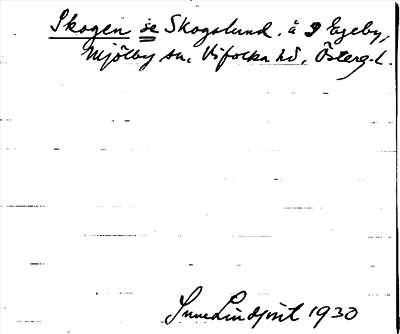 Skogen se Skogslund. å S Egeby,
Mjölby sn, Vifolka hd, Österg. l.
Sune Lindqvist 1930